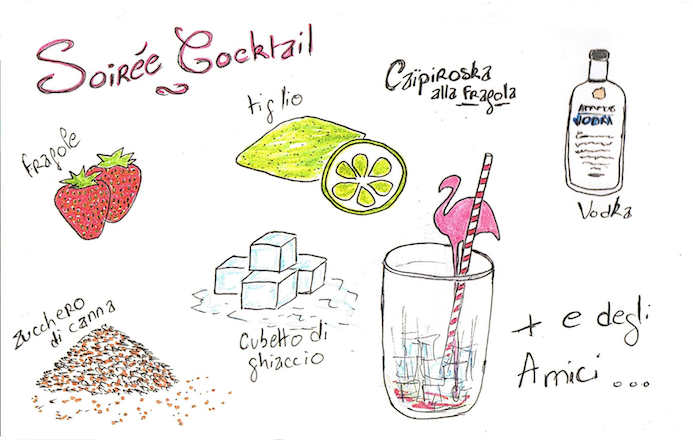 Soirée Cocktail
Caïpiroska
alla Fragola
tiglio
Fragole
VODKA
Vodka
Zucchero
di canna
Cubetto di
ghiaccio
+ e degli
Amici ...